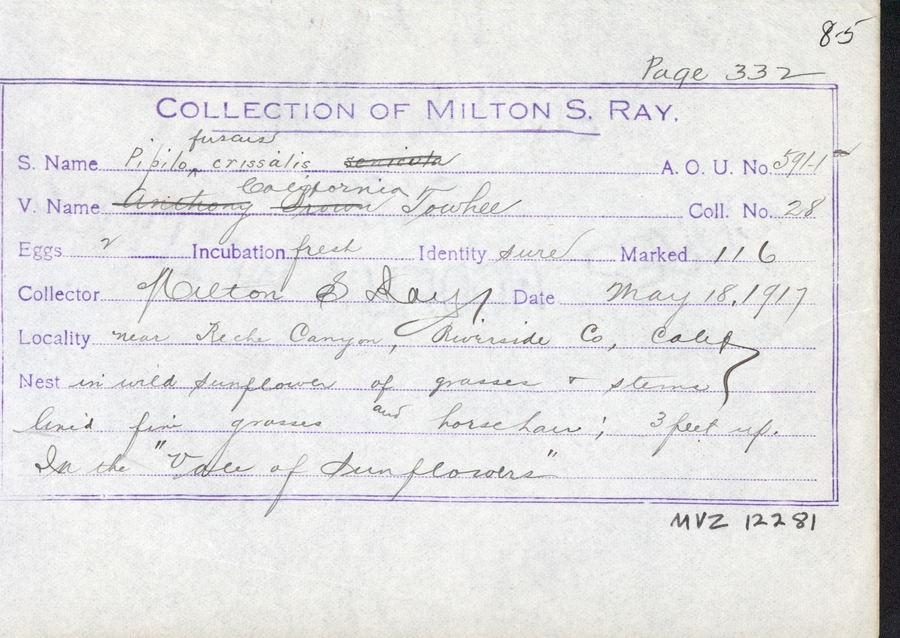 85
Page 332
COLLECTION OF MILTON S. RAY.
fuscus
S. Name Pipilo ^ crissalis senicula A. O. U. No. 591-1
California
V. Name Anthony Brown Towhee Coll. No. 28
Eggs 2 Incubation fresh Identity sure Marked 116
Collector Milton S Ray Date May 18, 1917
Locality near Reche Canyon, Riverside Co, Calif
Nest in wild sunflower of grasses + stems
lined fine grasses and horsehair; 3 feet up.
In the "Vale of Sunflowers"
MVZ 12281